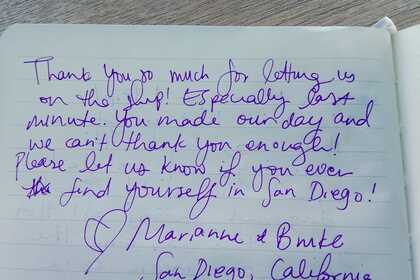 Thank you so much for letting us
on the ship! Especially last
minute. You made our day and
we can't thank you enough!
Please let us know if you ever
find yourself in San Diego!
Marianne &
San Diego, California